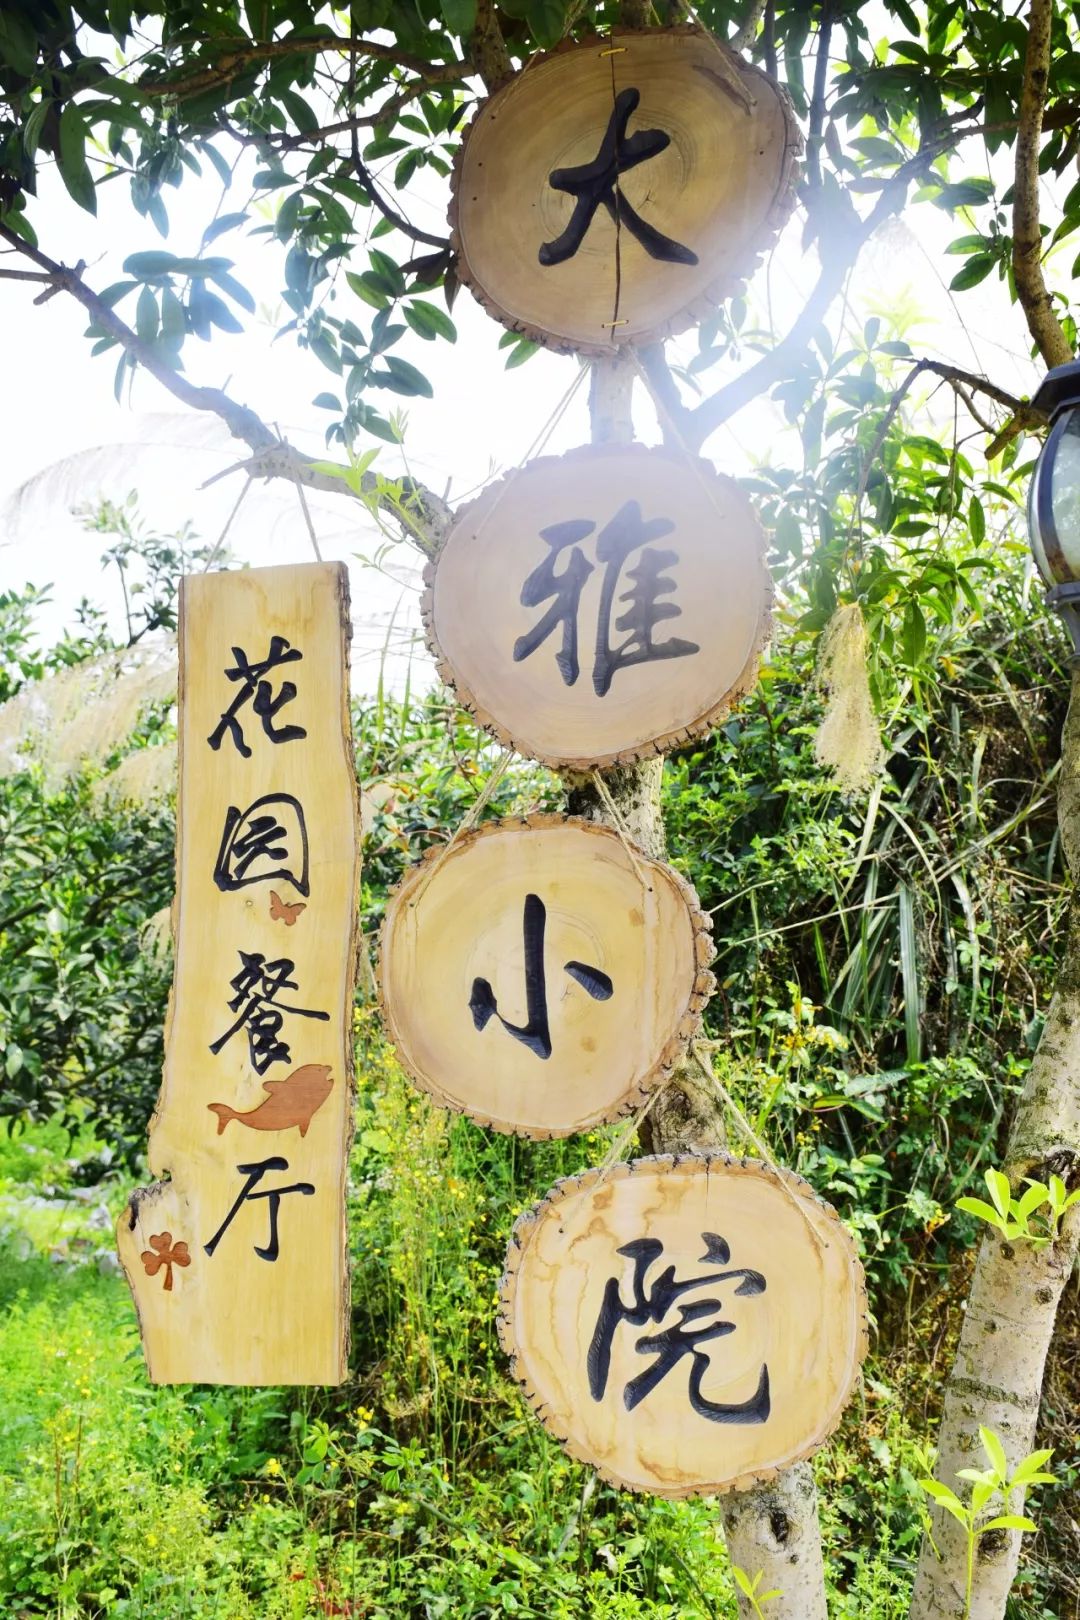 大雅小院
花园餐厅